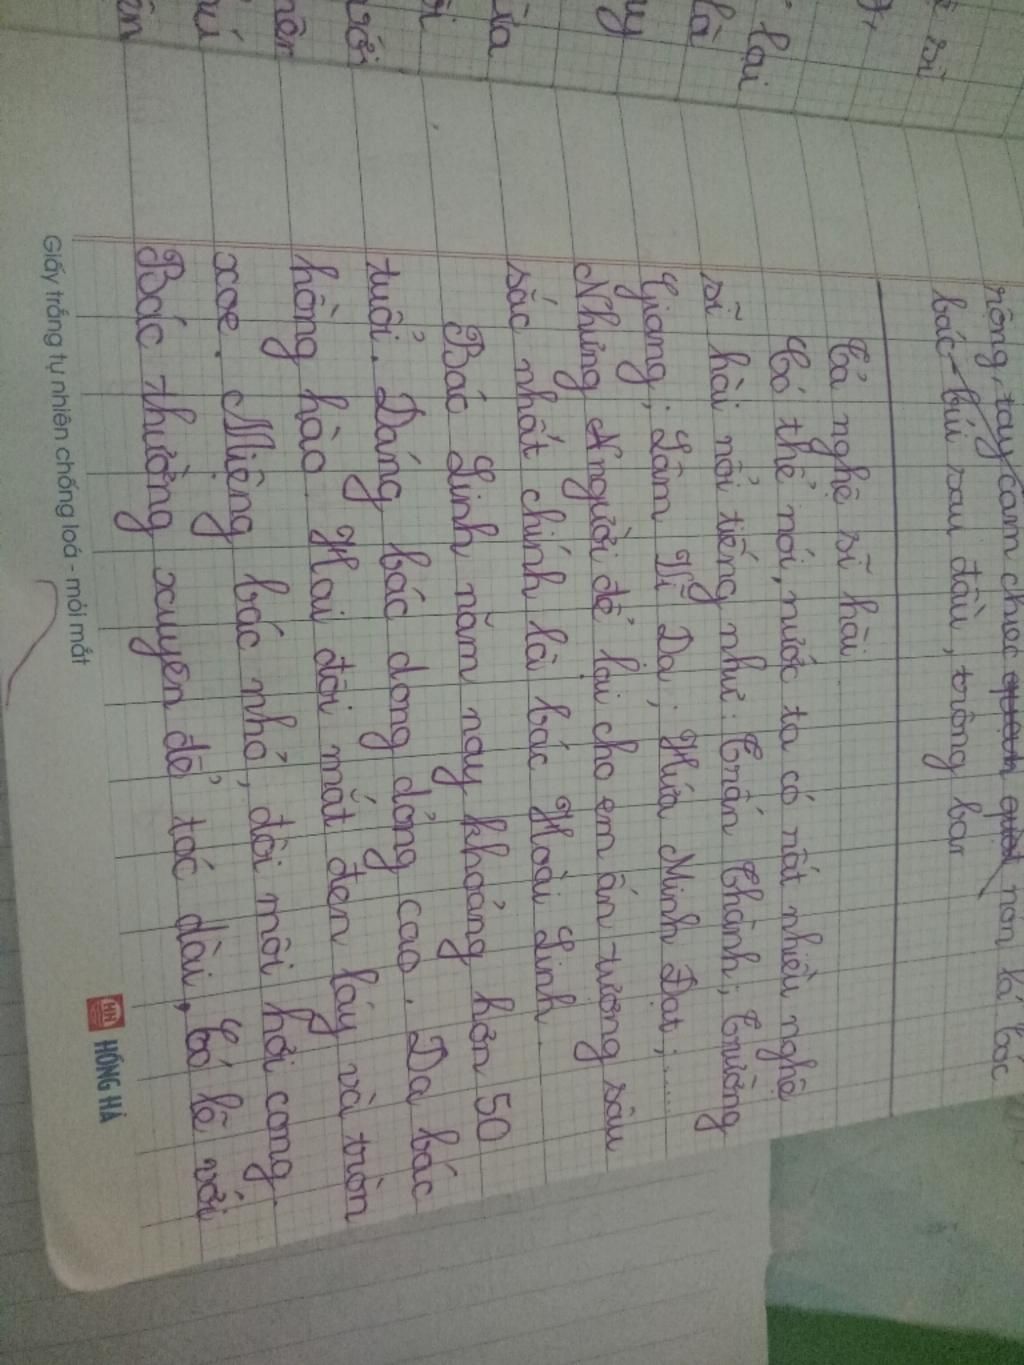 rông, tay cam chiec non lá bác
bác - búi sau đầu, trông bar
Tả nghệ sĩ hài
Có thể nói, nước ta có rất nhiều nghệ
sĩ hài nổi tiếng như: Trấn Thành; Trường
Giang; Lâm Vĩ Dạ; Hứa Minh Đạt; .....
Nhưng Người để lại cho em ấn tượng sâu
sắc nhất chính là bác Hoài Linh.
Bác Linh năm nay khoảng hơn 50
tuổi. Dáng bác dong dỏng cao. Da bác
hồng hào. Hai đôi mắt đen láy và tròn
xoe. Miệng bác nhỏ, đôi môi hơi cong.
Bác thường xuyên để tóc dài, Có lẽ với
Giấy trắng tự nhiên chống loá - mỏi mắt
HN HỒNG HÀ
rồi
lại
là
uy
ưa
ôi
với